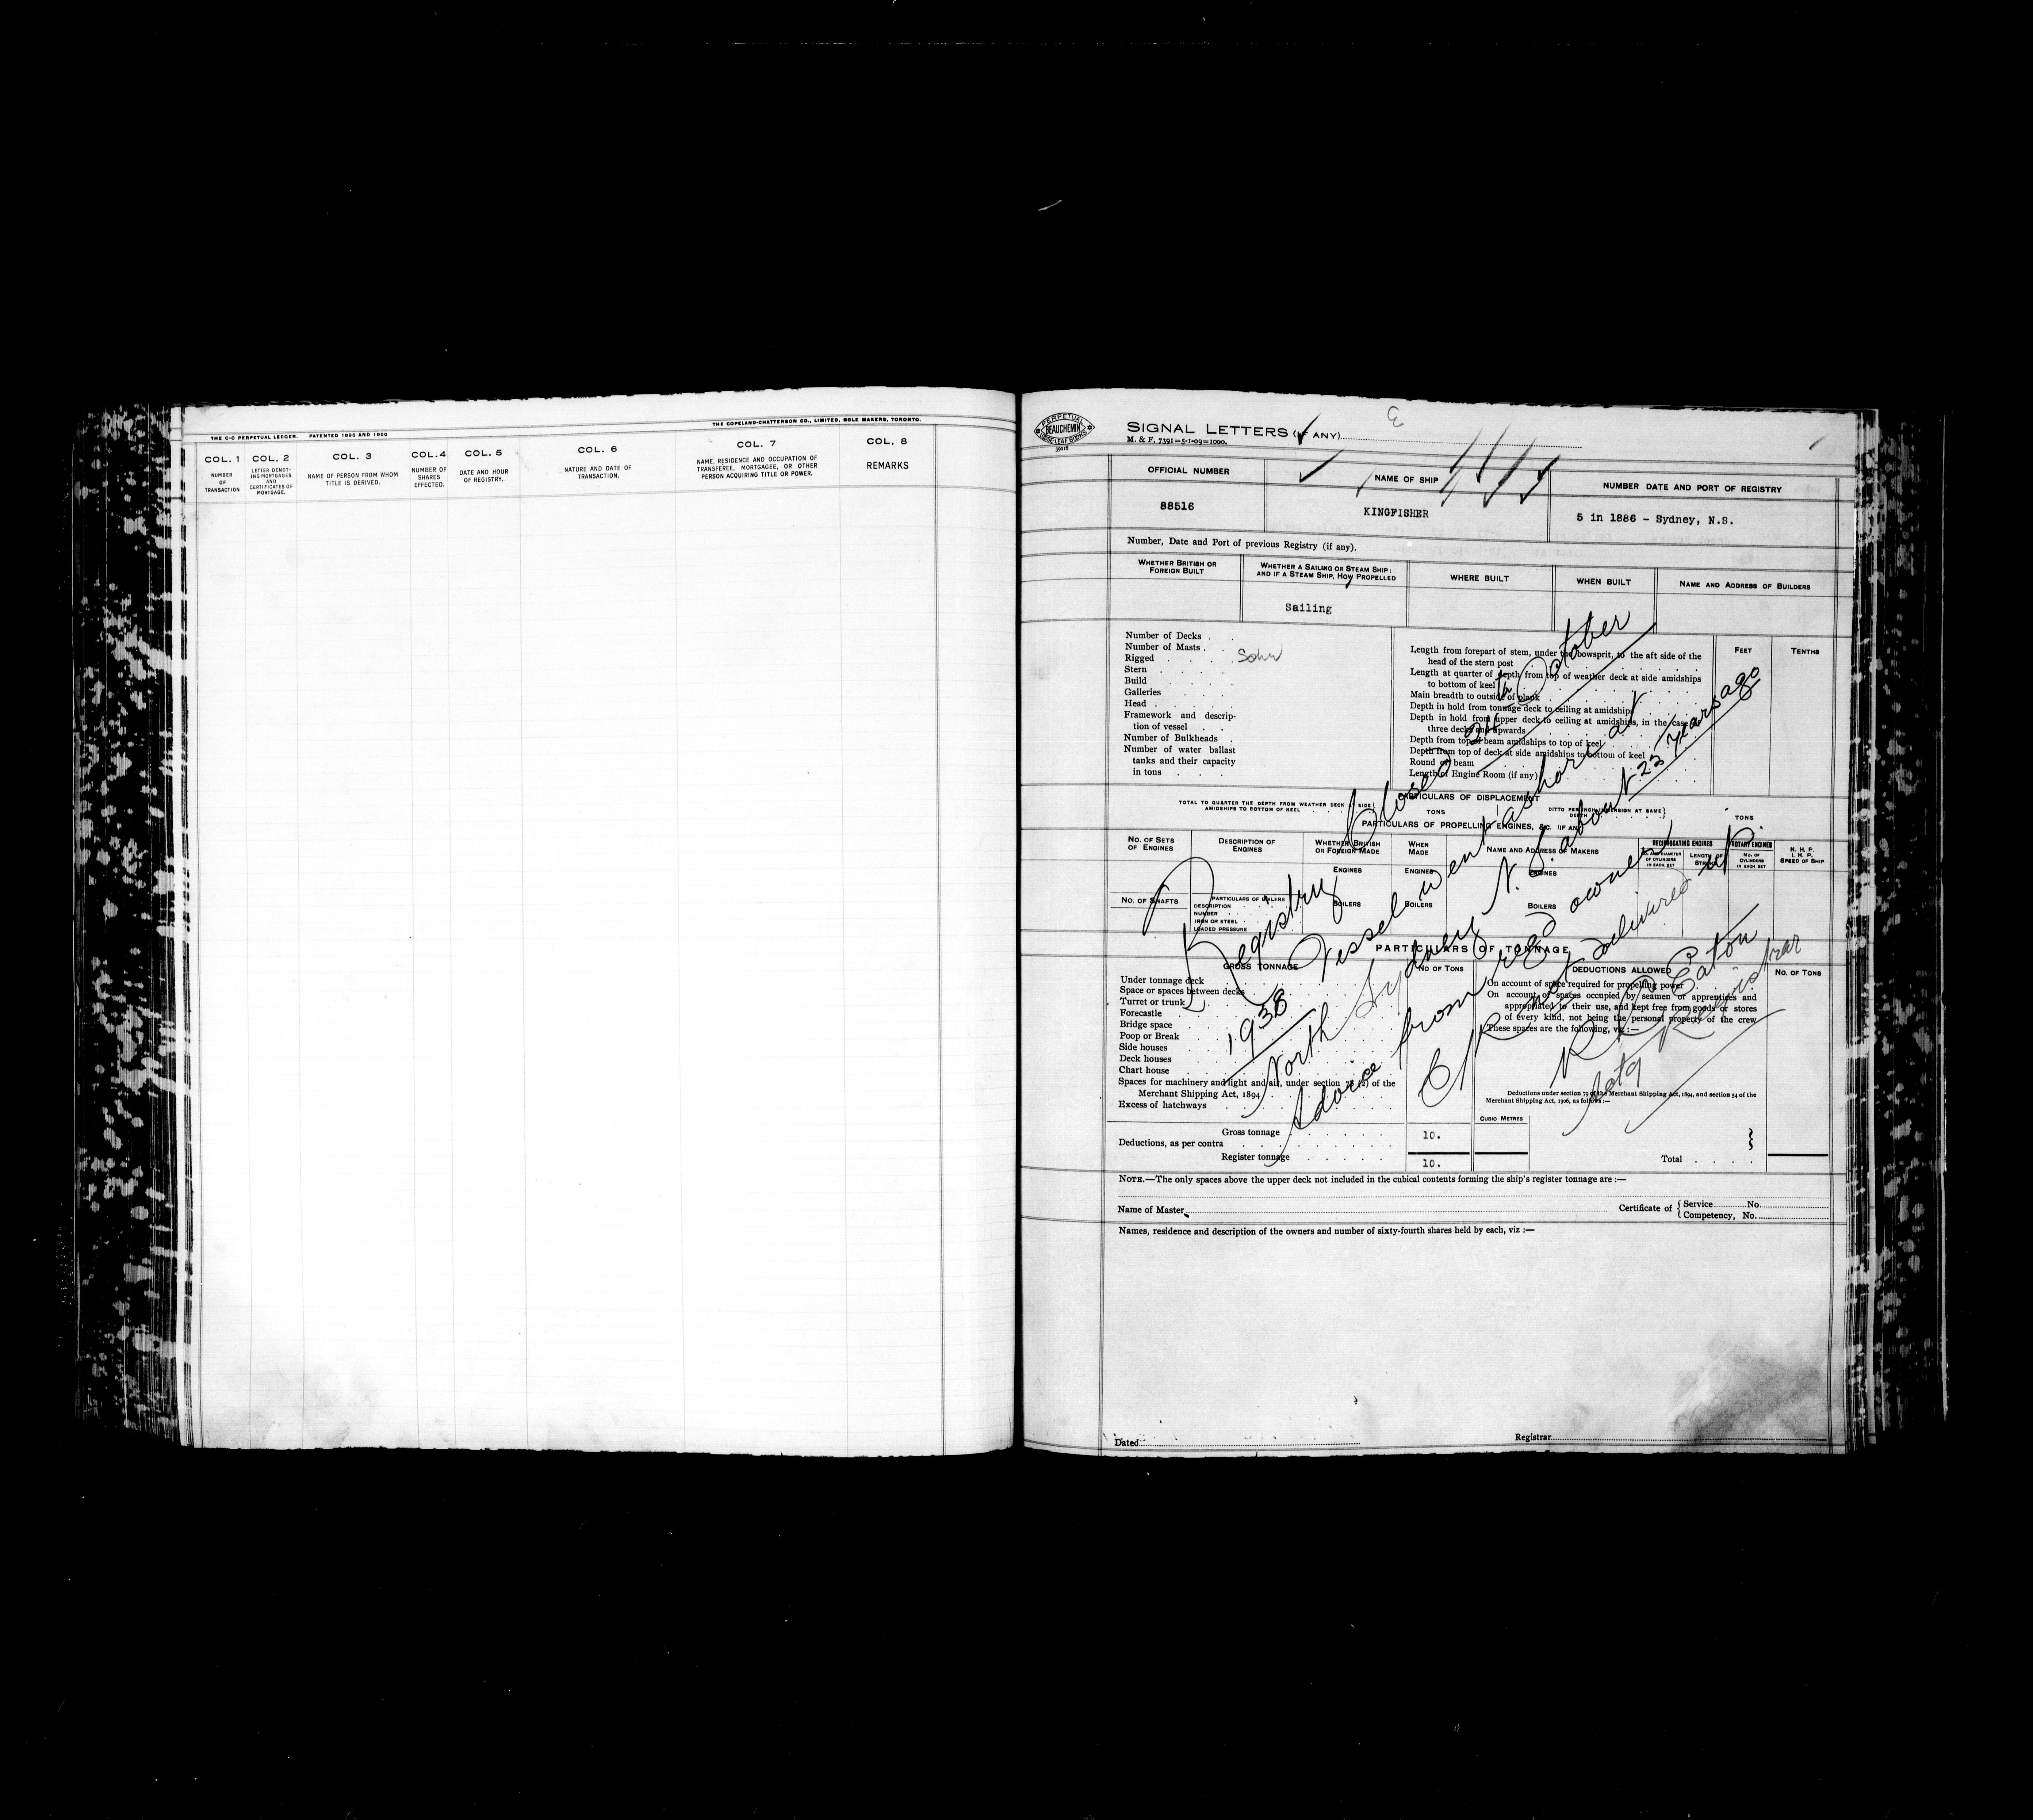 THE C-C PERPETUAL LEDGER. PATENTED 1895 AND 1900
THE COPELAND-CHATTERSON CO., LIMITED, SOLE MAKERS, TORONTO.
COL. 1
NUMBER OF TRANSACTION
COL. 2
LETTER DENOTING MORTGAGES AND CERTIFICATES OF MORTGAGE.
COL. 3
NAME OF PERSON FROM WHOM TITLE IS DERIVED.
COL. 4
NUMBER OF SHARES EFFECTED.
COL. 5
DATE AND HOUR OF REGISTRY.
COL. 6
NATURE AND DATE OF TRANSACTION.
COL. 7
NAME, RESIDENCE AND OCCUPATION OF TRANSFEREE, MORTGAGEE, OR OTHER PERSON ACQUIRING TITLE OR POWER.
COL. 8
REMARKS
PERPETUAL
BEAUCHEMIN
LOOSE LEAF BOOKS
SIGNAL LETTERS (IF ANY)
M. & F. 7391=5-1-09=1000.
OFFICIAL NUMBER
88516
NAME OF SHIP
KINGFISHER
NUMBER DATE AND PORT OF REGISTRY
5 in 1886 - Sydney, N.S.
Number, Date and Port of previous Registry (if any).
WHETHER BRITISH OR FOREIGN BUILT
WHETHER A SAILING OR STEAM SHIP: AND IF A STEAM SHIP, HOW PROPELLED
Sailing
WHERE BUILT
WHEN BUILT
NAME AND ADDRESS OF BUILDERS
Number of Decks
Number of Masts
Rigged Schr
Stern
Build
Galleries
Head
Framework and description of vessel
Number of Bulkheads
Number of water ballast tanks and their capacity in tons
FEET
TENTHS
Length from forepart of stem, under the bowsprit, to the aft side of the head of the stern post
Length at quarter of depth from top of weather deck at side amidships to bottom of keel
Main breadth to outside of plank
Depth in hold from tonnage deck to ceiling at amidships
Depth in hold from upper deck to ceiling at amidships, in the case three decks and upwards
Depth from top of beam amidships to top of keel
Depth from top of deck at side amidships to bottom of keel
Round of beam
Length of Engine Room (if any)
PARTICULARS OF DISPLACEMENT
TOTAL TO QUARTER THE DEPTH FROM WEATHER DECK AT SIDE AMIDSHIPS TO BOTTOM OF KEEL
TONS
DITTO PER INCH IMMERSION AT SAME DEPTH
TONS
PARTICULARS OF PROPELLING ENGINES, &C. (IF ANY)
NO. OF SETS OF ENGINES
DESCRIPTION OF ENGINES
WHETHER BRITISH OR FOREIGN MADE
WHEN MADE
NAME AND ADDRESS OF MAKERS
RECIPROCATING ENGINES
NO. AND DIAMETER OF CYLINDERS IN EACH SET
LENGTH OF STROKE
ROTARY ENGINES
NO. OF CYLINDERS IN EACH SET
N. H. P.
I. H. P.
SPEED OF SHIP
ENGINES
ENGINES
ENGINES
NO. OF SHAFTS
PARTICULARS OF BOILERS
DESCRIPTION
NUMBER
IRON OR STEEL
LOADED PRESSURE
BOILERS
BOILERS
BOILERS
PARTICULARS OF TONNAGE
GROSS TONNAGE
NO OF TONS
DEDUCTIONS ALLOWED
NO. OF TONS
Under tonnage deck
Space or spaces between decks
Turret or trunk
Forecastle
Bridge space
Poop or Break
Side houses
Deck houses
Chart house
Spaces for machinery and light and air, under section 78 (2) of the Merchant Shipping Act, 1894
Excess of hatchways
On account of space required for propelling power
On account of spaces occupied by seamen or apprentices and appropriated to their use, and kept free from goods or stores of every kind, not being the personal property of the crew
These spaces are the following, viz :—
Deductions under section 79 of the Merchant Shipping Act, 1894, and section 54 of the Merchant Shipping Act, 1906, as follows :—
CUBIC METRES
Gross tonnage 10.
Deductions, as per contra
Register tonnage 10.
Total
NOTE.—The only spaces above the upper deck not included in the cubical contents forming the ship's register tonnage are :—
Name of Master
Certificate of { Service No.
Competency, No.
Names, residence and description of the owners and number of sixty-fourth shares held by each, viz :—
Dated
Registrar
Registry Closed 24th October
1938 Vessel went ashore at
North Sydney N.S. about 23 years ago
Advice from reg'd owner
C/R not delivered up
R D Eaton
Actg Registrar